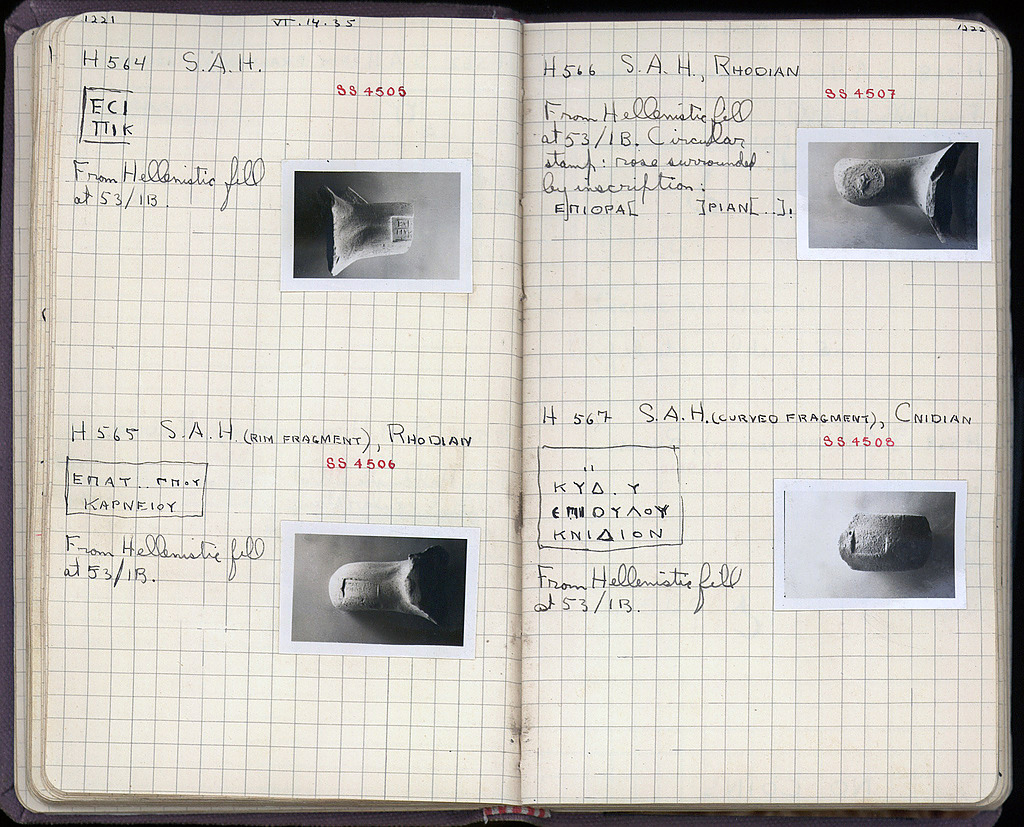 1221
VI.14.35
H 564 S.A.H.
SS 4505
ΕCΙ
ΠΙΚ
From Hellenistic fill
at 53/ΙΒ.
H 565 S.A.H. (RIM FRAGMENT), RHODIAN
SS 4506
ΕΠΑΤ..ΓΠΟΥ
ΚΑΡΝΕΙΟΥ
From Hellenistic fill
at 53/ΙΒ.
1222
H 566 S.A.H., RHODIAN
SS 4507
From Hellenistic fill
at 53/ΙΒ. Circular
stamp: rose surrounded
by inscription:
ΕΠΙΟΡΑ[ ]ΡΙΑΝ[..].
H 567 S.A.H. (CURVED FRAGMENT), CNIDIAN
SS 4508
ΚΥΔ.Υ
ΕΠΙΟΥΛΟΥ
ΚΝΙΔΙΟΝ
From Hellenistic fill
at 53/ΙΒ.